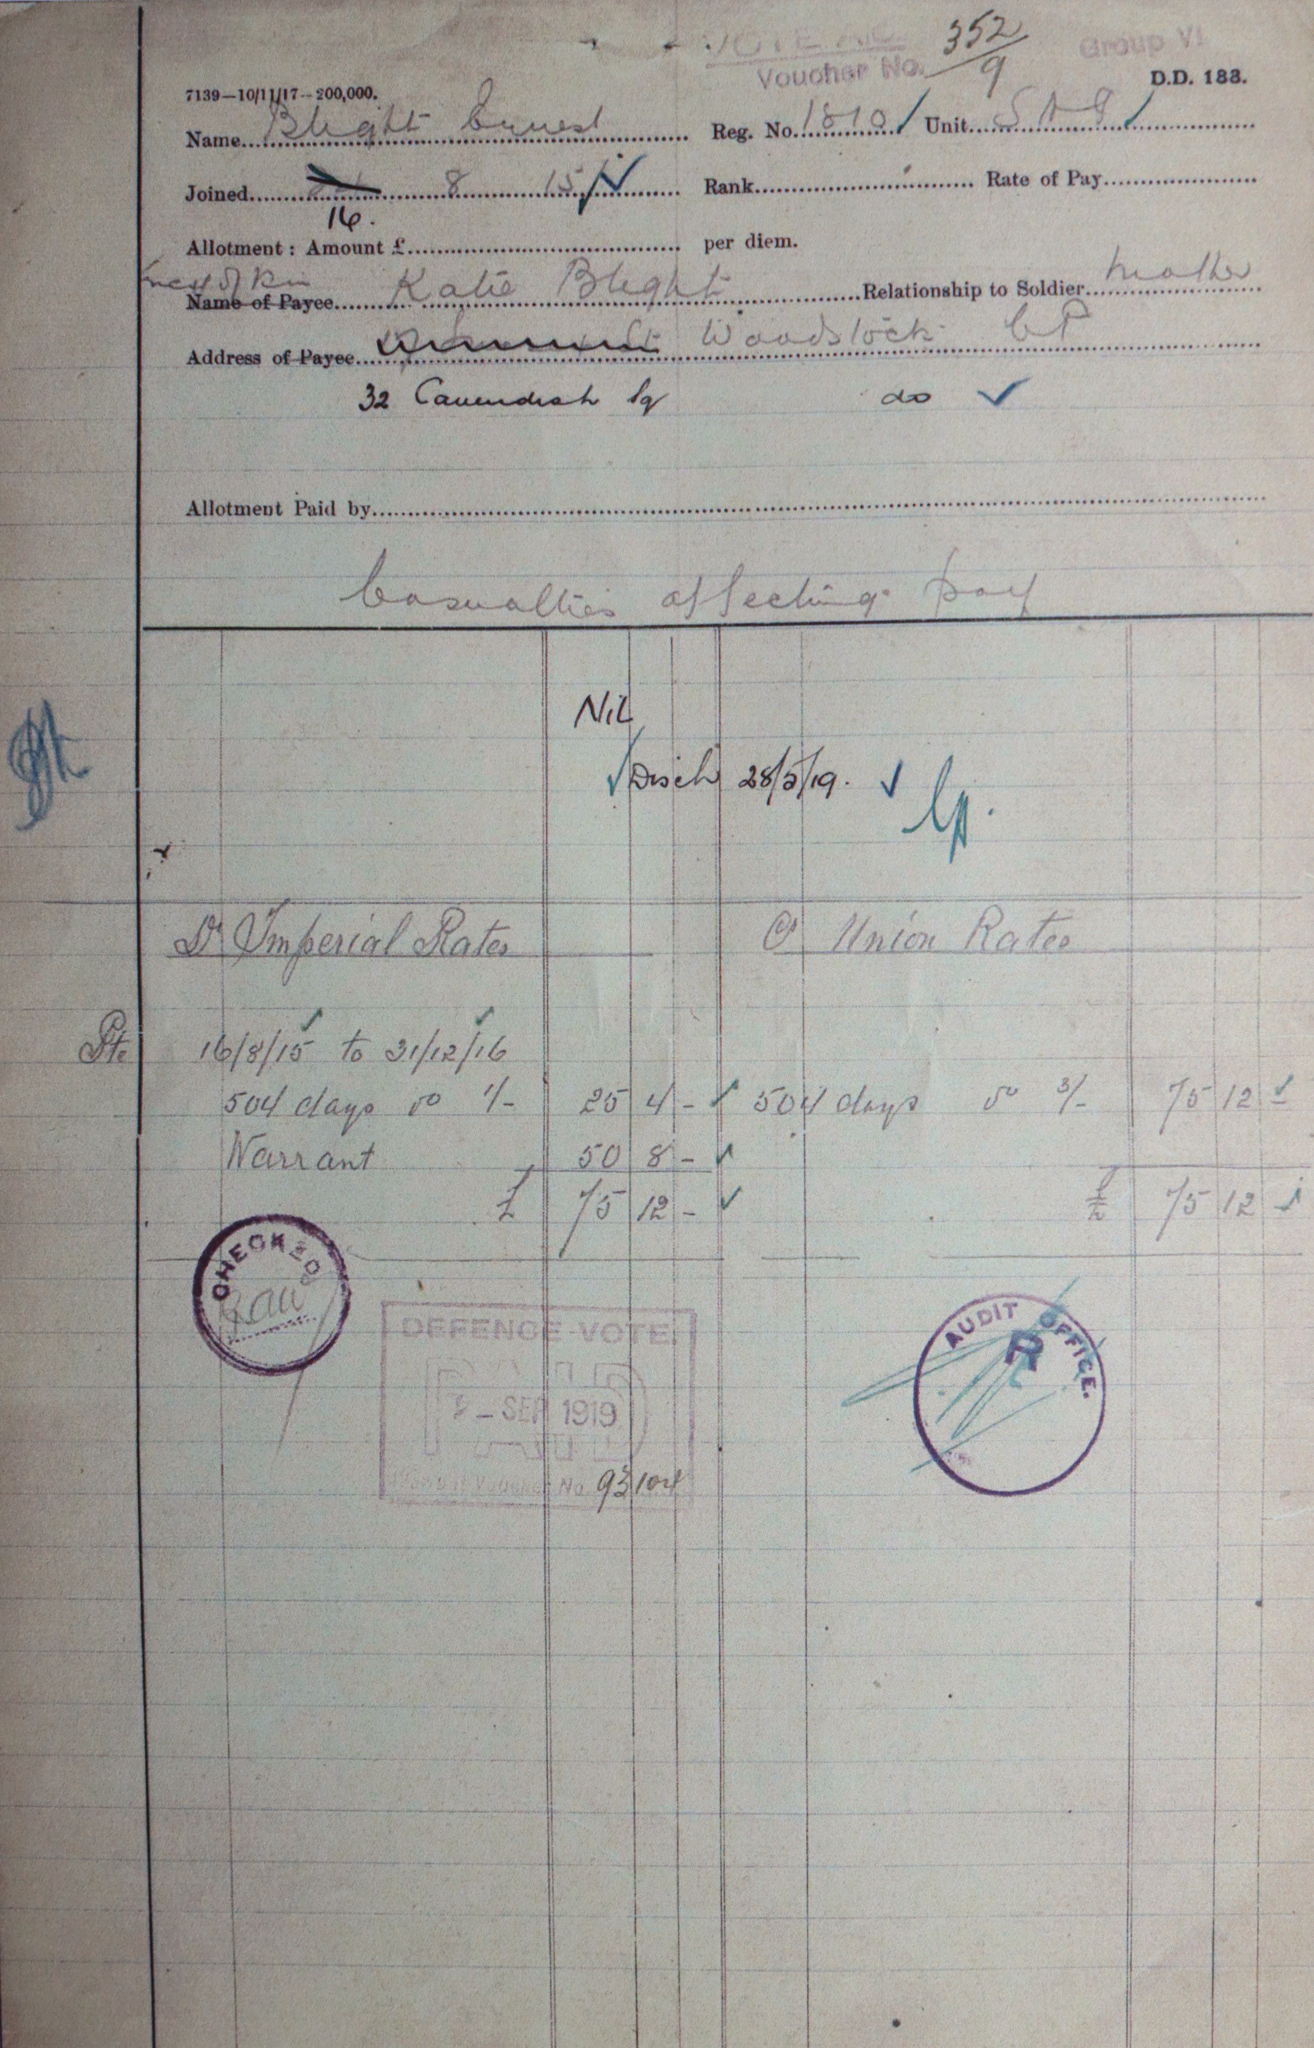 VOTE No.
Voucher No. 352/9
Group VI
7139—10/11/17—200,000.
D.D. 183.
Name Blight Ernest Reg. No. 1810 Unit S A I
Joined 8 15 Rank Rate of Pay
16.
Allotment : Amount £ per diem.
next of kin
Name of Payee Katie Blight Relationship to Soldier mother
Address of Payee Woodstock CP
32 Cavendish Sq do
Allotment Paid by
Casualties affecting pay
Nil
Disch 28/5/19.
Dr Imperial Rates Cr Union Rates
Pte 16/8/15 to 31/12/16
504 days @ 1/- 25 4 - 504 days @ 3/- 75 12 -
Warrant 50 8 -
£ 75 12 - £ 75 12 -
CHECKED
DEFENCE VOTE
PAID
SEP 1919
Voucher No. 93104
AUDIT OFFICE.
R